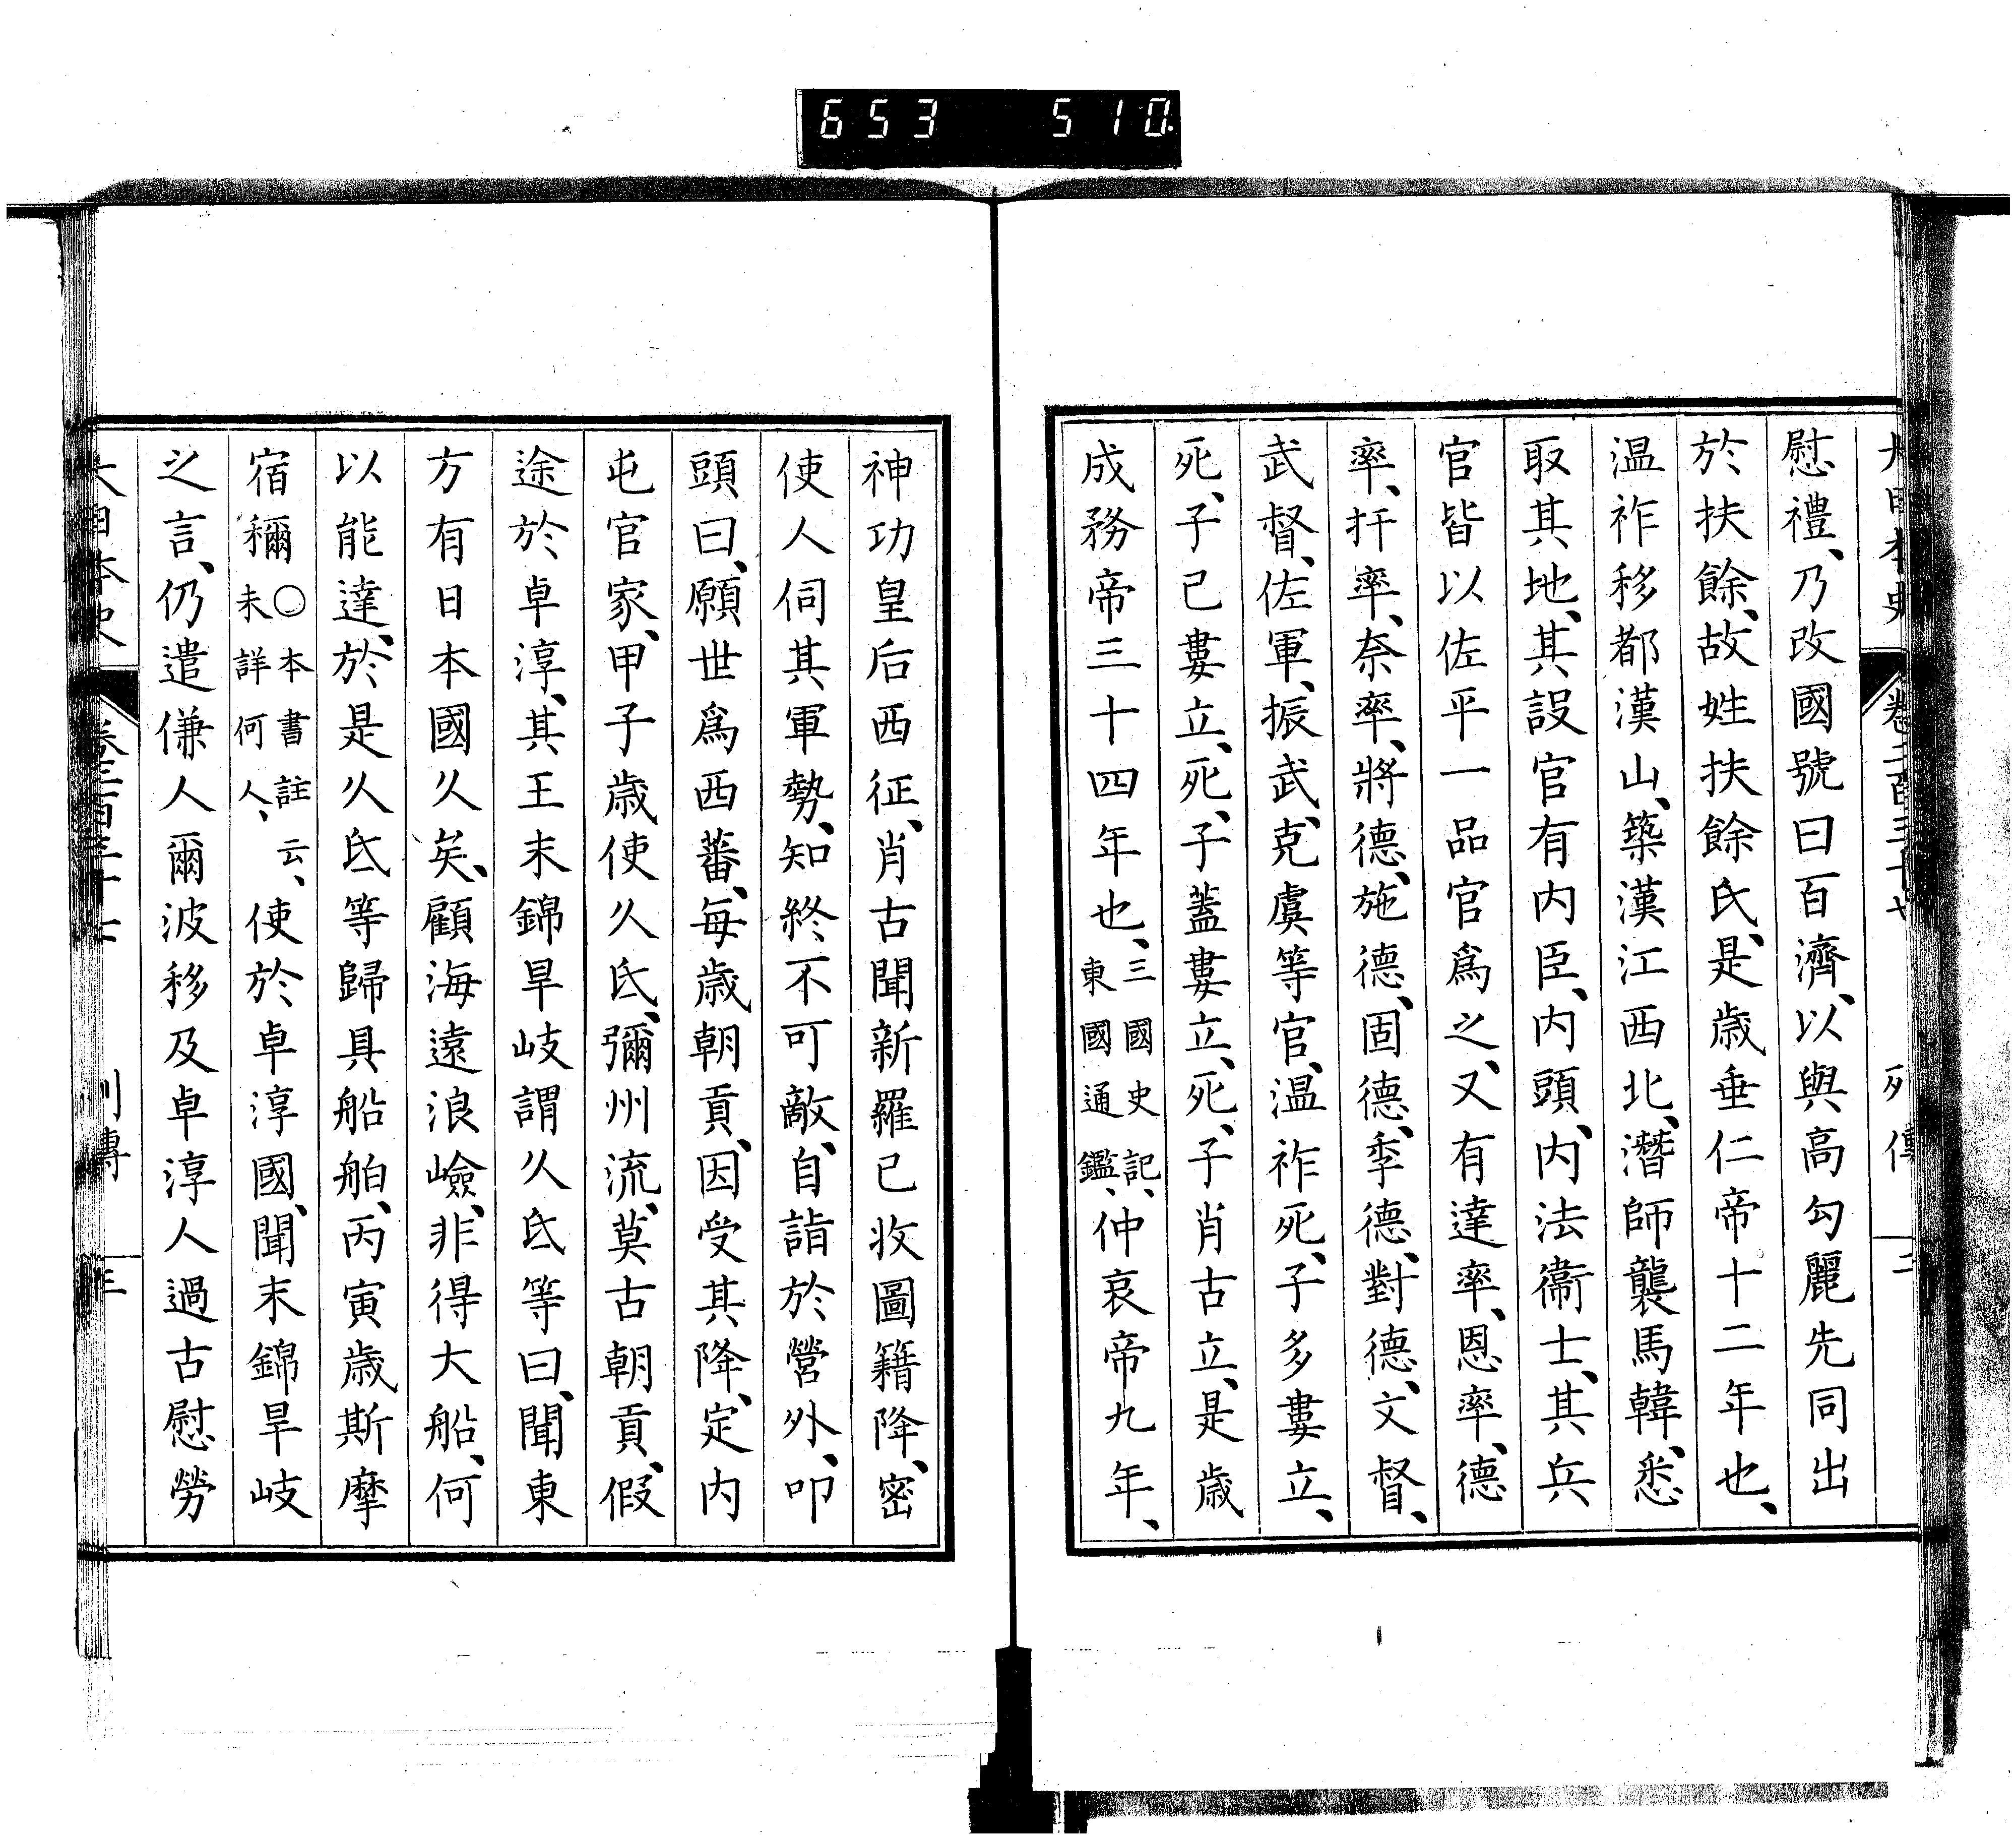 653 510
大日本史 卷二百三十七 列傳 二
慰禮、乃改國號曰百濟、以與高勾麗先同出
於扶餘、故姓扶餘氏、是歳垂仁帝十二年也、
温祚移都漢山、築漢江西北、潛師襲馬韓、悉
取其地、其設官有内臣、内頭、内法衞士、其兵
官皆以佐平一品官爲之、又有達率、恩率、德
率、扞率、奈率、將德、施德、固德、季德、對德、文督、
武督、佐軍、振武、克虞等官、温祚死、子多婁立、
死、子己婁立、死、子蓋婁立、死、子肖古立、是歳
成務帝三十四年也、三國史記、東國通鑑、仲哀帝九年、
神功皇后西征、肖古聞新羅已收圖籍降、密
使人伺其軍勢、知終不可敵、自詣於營外、叩
頭曰、願世爲西蕃、毎歳朝貢、因受其降、定内
屯官家、甲子歳使久氐、彌州流、莫古朝貢、假
途於卓淳、其王末錦旱岐謂久氐等曰、聞東
方有日本國久矣、顧海遠浪嶮、非得大船、何
以能達、於是久氐等歸具船舶、丙寅歳斯摩
宿稱〇本書註云、未詳何人、使於卓淳國、聞末錦旱岐
之言、仍遣傔人爾波移及卓淳人過古慰勞
大日本史 卷二百三十七 列傳 三